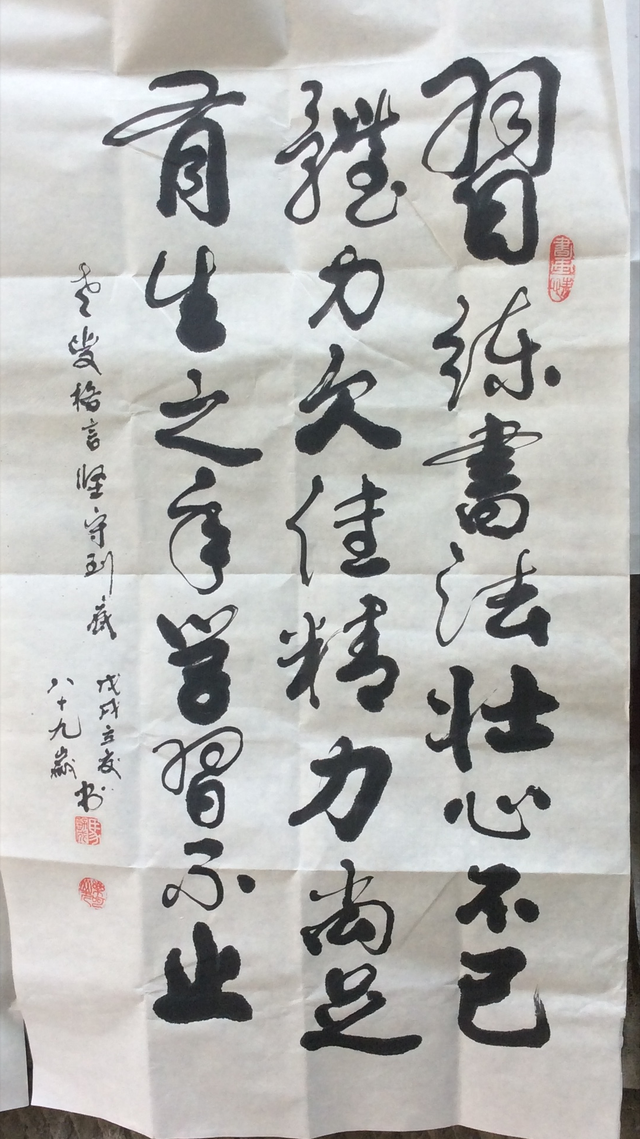 習練書法壯心不已
體力欠佳精力尚足
有生之年学習不止
老叟格言坚守到底
戊戌立夏
八十九歲书